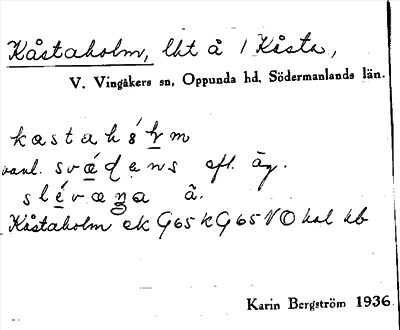 Kåstaholm, lht å 1 Kåsta,
V. Vingåkers sn, Oppunda hd, Södermanlands län.
kastahɷ́lm
vanl. svǽdens efl. äg.
slévæna ä.
Kåstaholm ek G65kG65NO hal hb
Karin Bergström 1936.